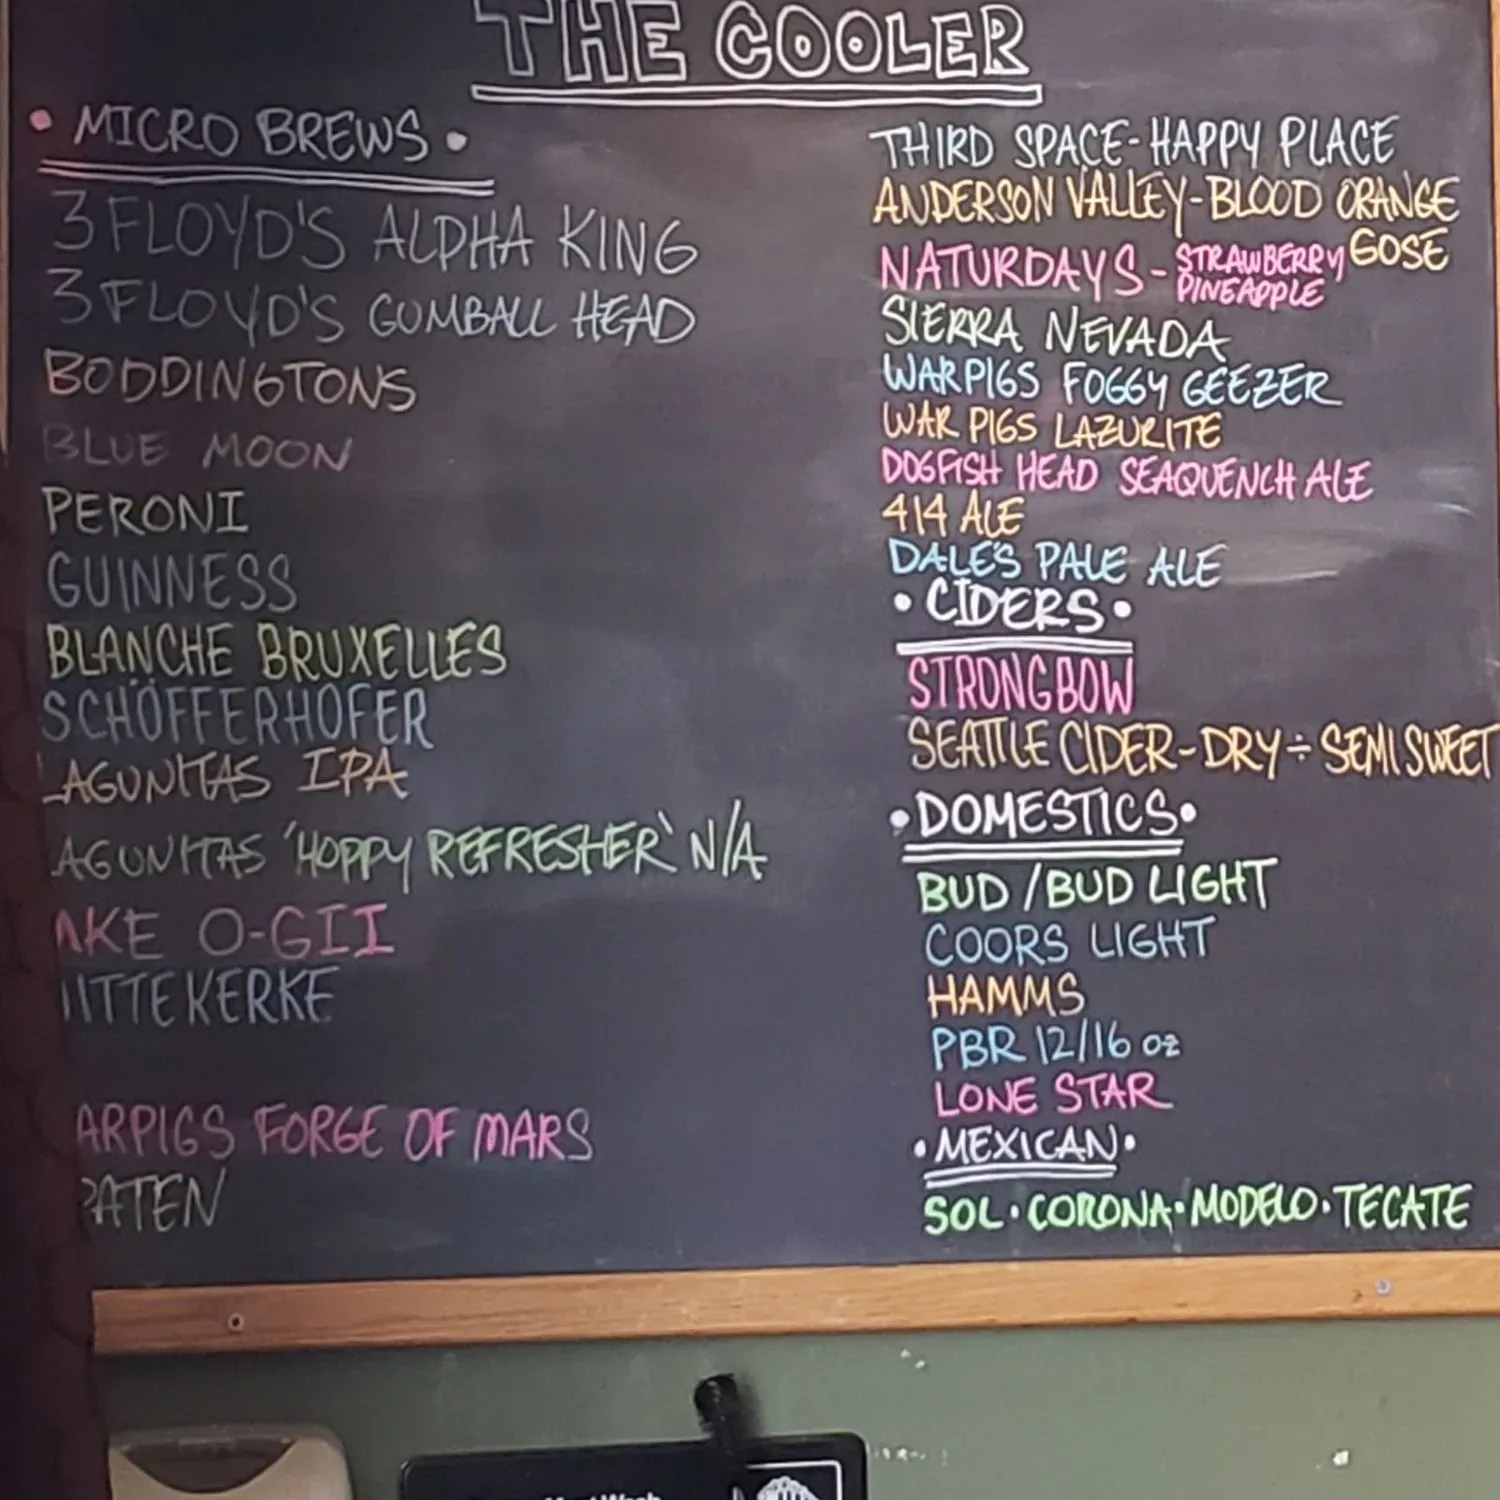 THE COOLER
• MICRO BREWS •
3 FLOYD'S ALPHA KING
3 FLOYD'S GUMBALL HEAD
BODDINGTONS
BLUE MOON
PERONI
GUINNESS
BLANCHE BRUXELLES
SCHÖFFERHOFER
LAGUNITAS IPA
AGUNITAS 'HOPPY REFRESHER' N/A
AKE O-GII
ITTEKERKE
ARPIGS FORGE OF MARS
PATEN
THIRD SPACE-HAPPY PLACE
ANDERSON VALLEY-BLOOD ORANGE
GOSE
NATURDAYS - STRAWBERRY
PINEAPPLE
SIERRA NEVADA
WARPIGS FOGGY GEEZER
WAR PIGS LAZURITE
DOGFISH HEAD SEAQUENCH ALE
414 ALE
DALE'S PALE ALE
• CIDERS •
STRONGBOW
SEATTLE CIDER-DRY ÷ SEMI SWEET
• DOMESTICS •
BUD / BUD LIGHT
COORS LIGHT
HAMMS
PBR 12/16 oz
LONE STAR
• MEXICAN •
SOL • CORONA • MODELO • TECATE